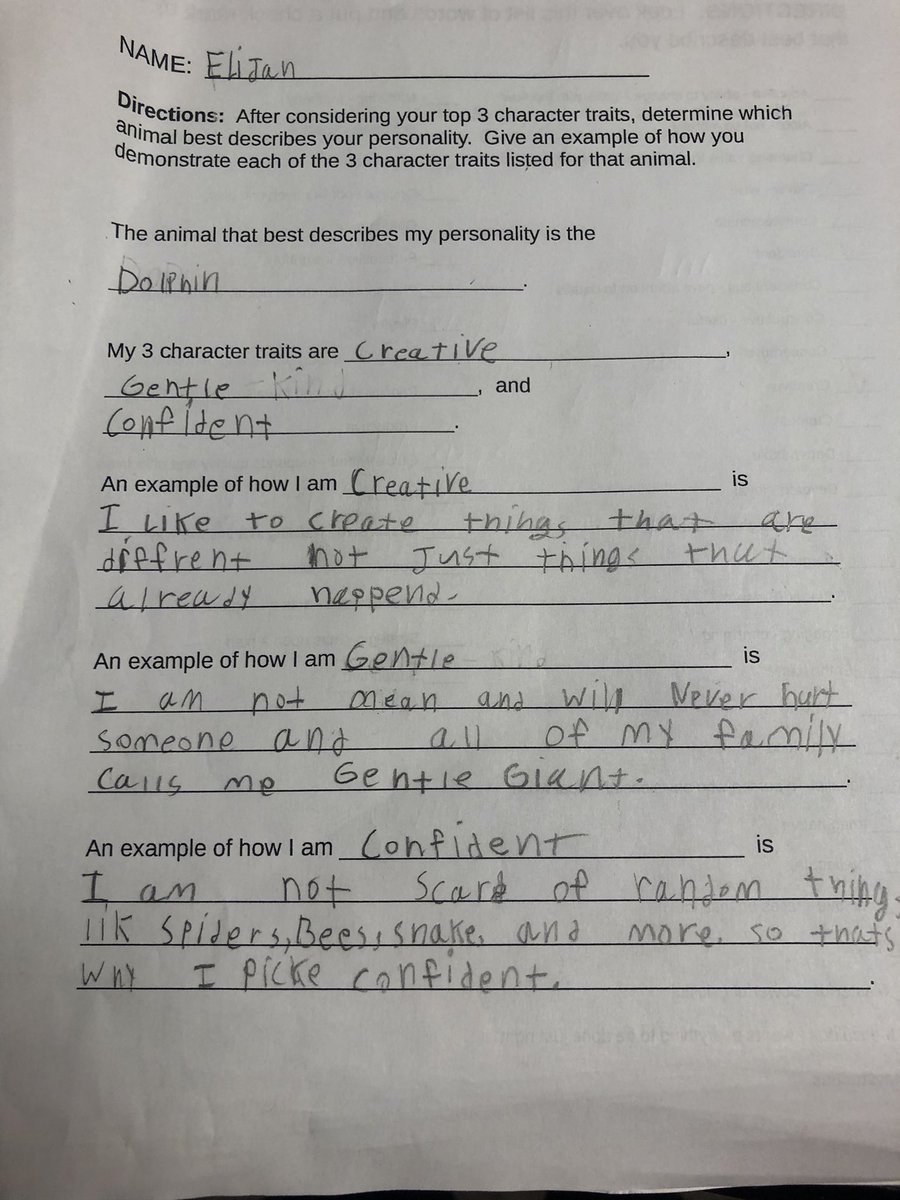 NAME: Elijan
Directions: After considering your top 3 character traits, determine which
animal best describes your personality. Give an example of how you
demonstrate each of the 3 character traits listed for that animal.
The animal that best describes my personality is the
Dolphin.
My 3 character traits are Creative,
Gentle - Kind, and
Confident.
An example of how I am Creative is
I Like to create things that are
diffrent not Just things that
already happend.
An example of how I am Gentle - Kind is
I am not mean and will Never hurt
someone and all of my family
calls me Gentle Giant.
An example of how I am Confident is
I am not scard of random things
lik spiders, Bees, snakes and more. so thats
Why I picke confident.